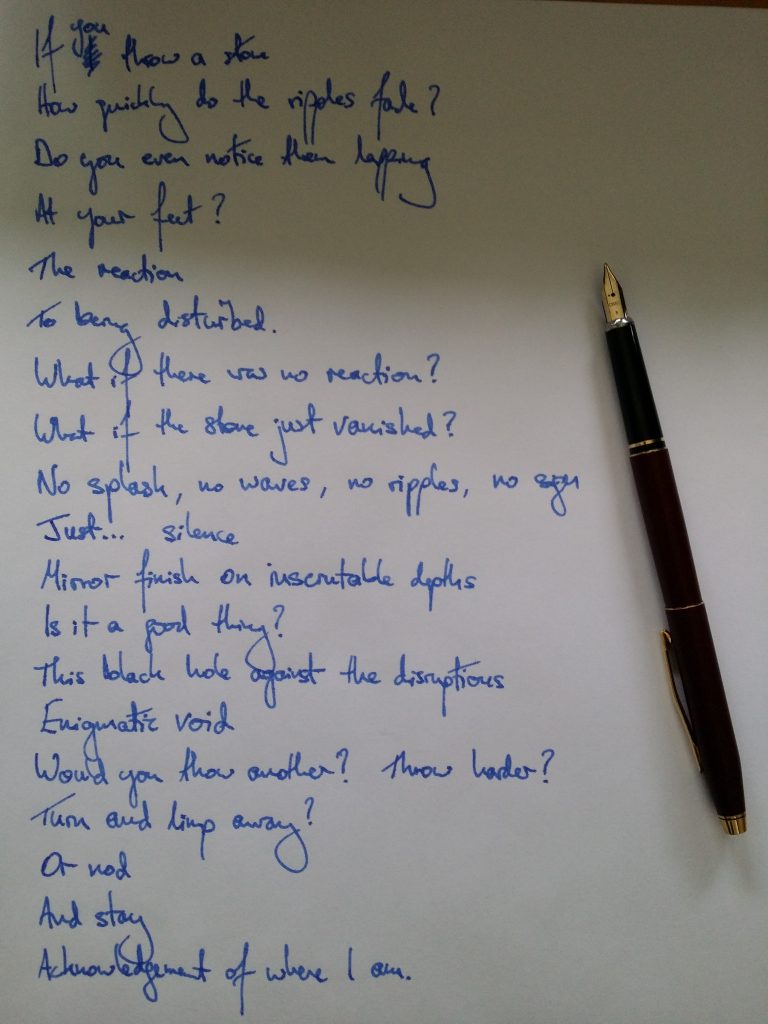 If you throw a stone
How quickly do the ripples fade?
Do you even notice them lapping
At your feet?
The reaction
To being disturbed.
What if there was no reaction?
What if the stone just vanished?
No splash, no waves, no ripples, no sign
Just... silence
Mirror finish on inscrutable depths
Is it a good thing?
This black hole against the disruptions
Enigmatic void
Would you throw another? Throw harder?
Turn and limp away?
Or nod
And stay
Acknowledgement of where I am.